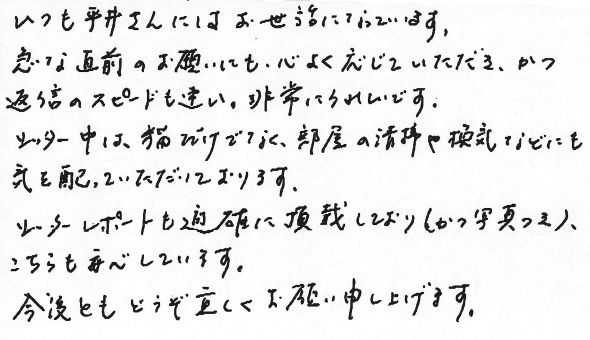 いつも平井さんにはお世話になっています。
急な直前のお願いにも、心よく応じていただき、かつ
返信のスピードも速い。非常にうれしいです。
シッター中は、猫だけでなく、部屋の清掃や換気などにも
気を配っていただいております。
シッターレポートも適確に頂戴しており(かつ写真つき)、
こちらも安心しています。
今後ともどうぞ宜しくお願い申し上げます。